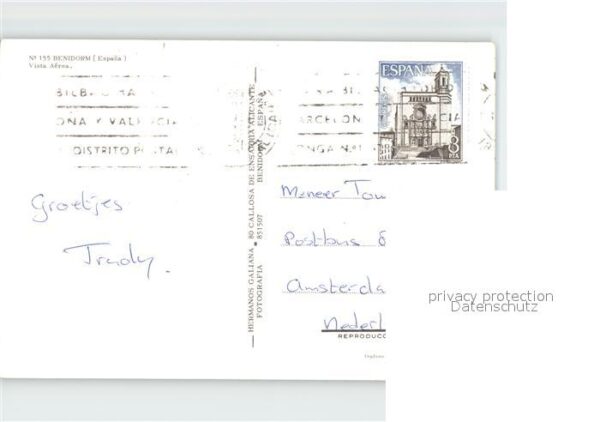 Nº 155 BENIDORM ( España )
Vista Aérea.
ESPAÑA
8
PTA
BARCELONA
ONA Y VALENCIA
DISTRITO POSTAL
Groetjes
Trudy.
HERMANOS GALIANA • 80 CALLOSA DE ENSARRIA ALICANTE
FOTOGRAFIA 851507 BENIDORM - ESPAÑA
Meneer
Postbus
Amsterda
Nederl
REPRODUCC
privacy protection
Datenschutz